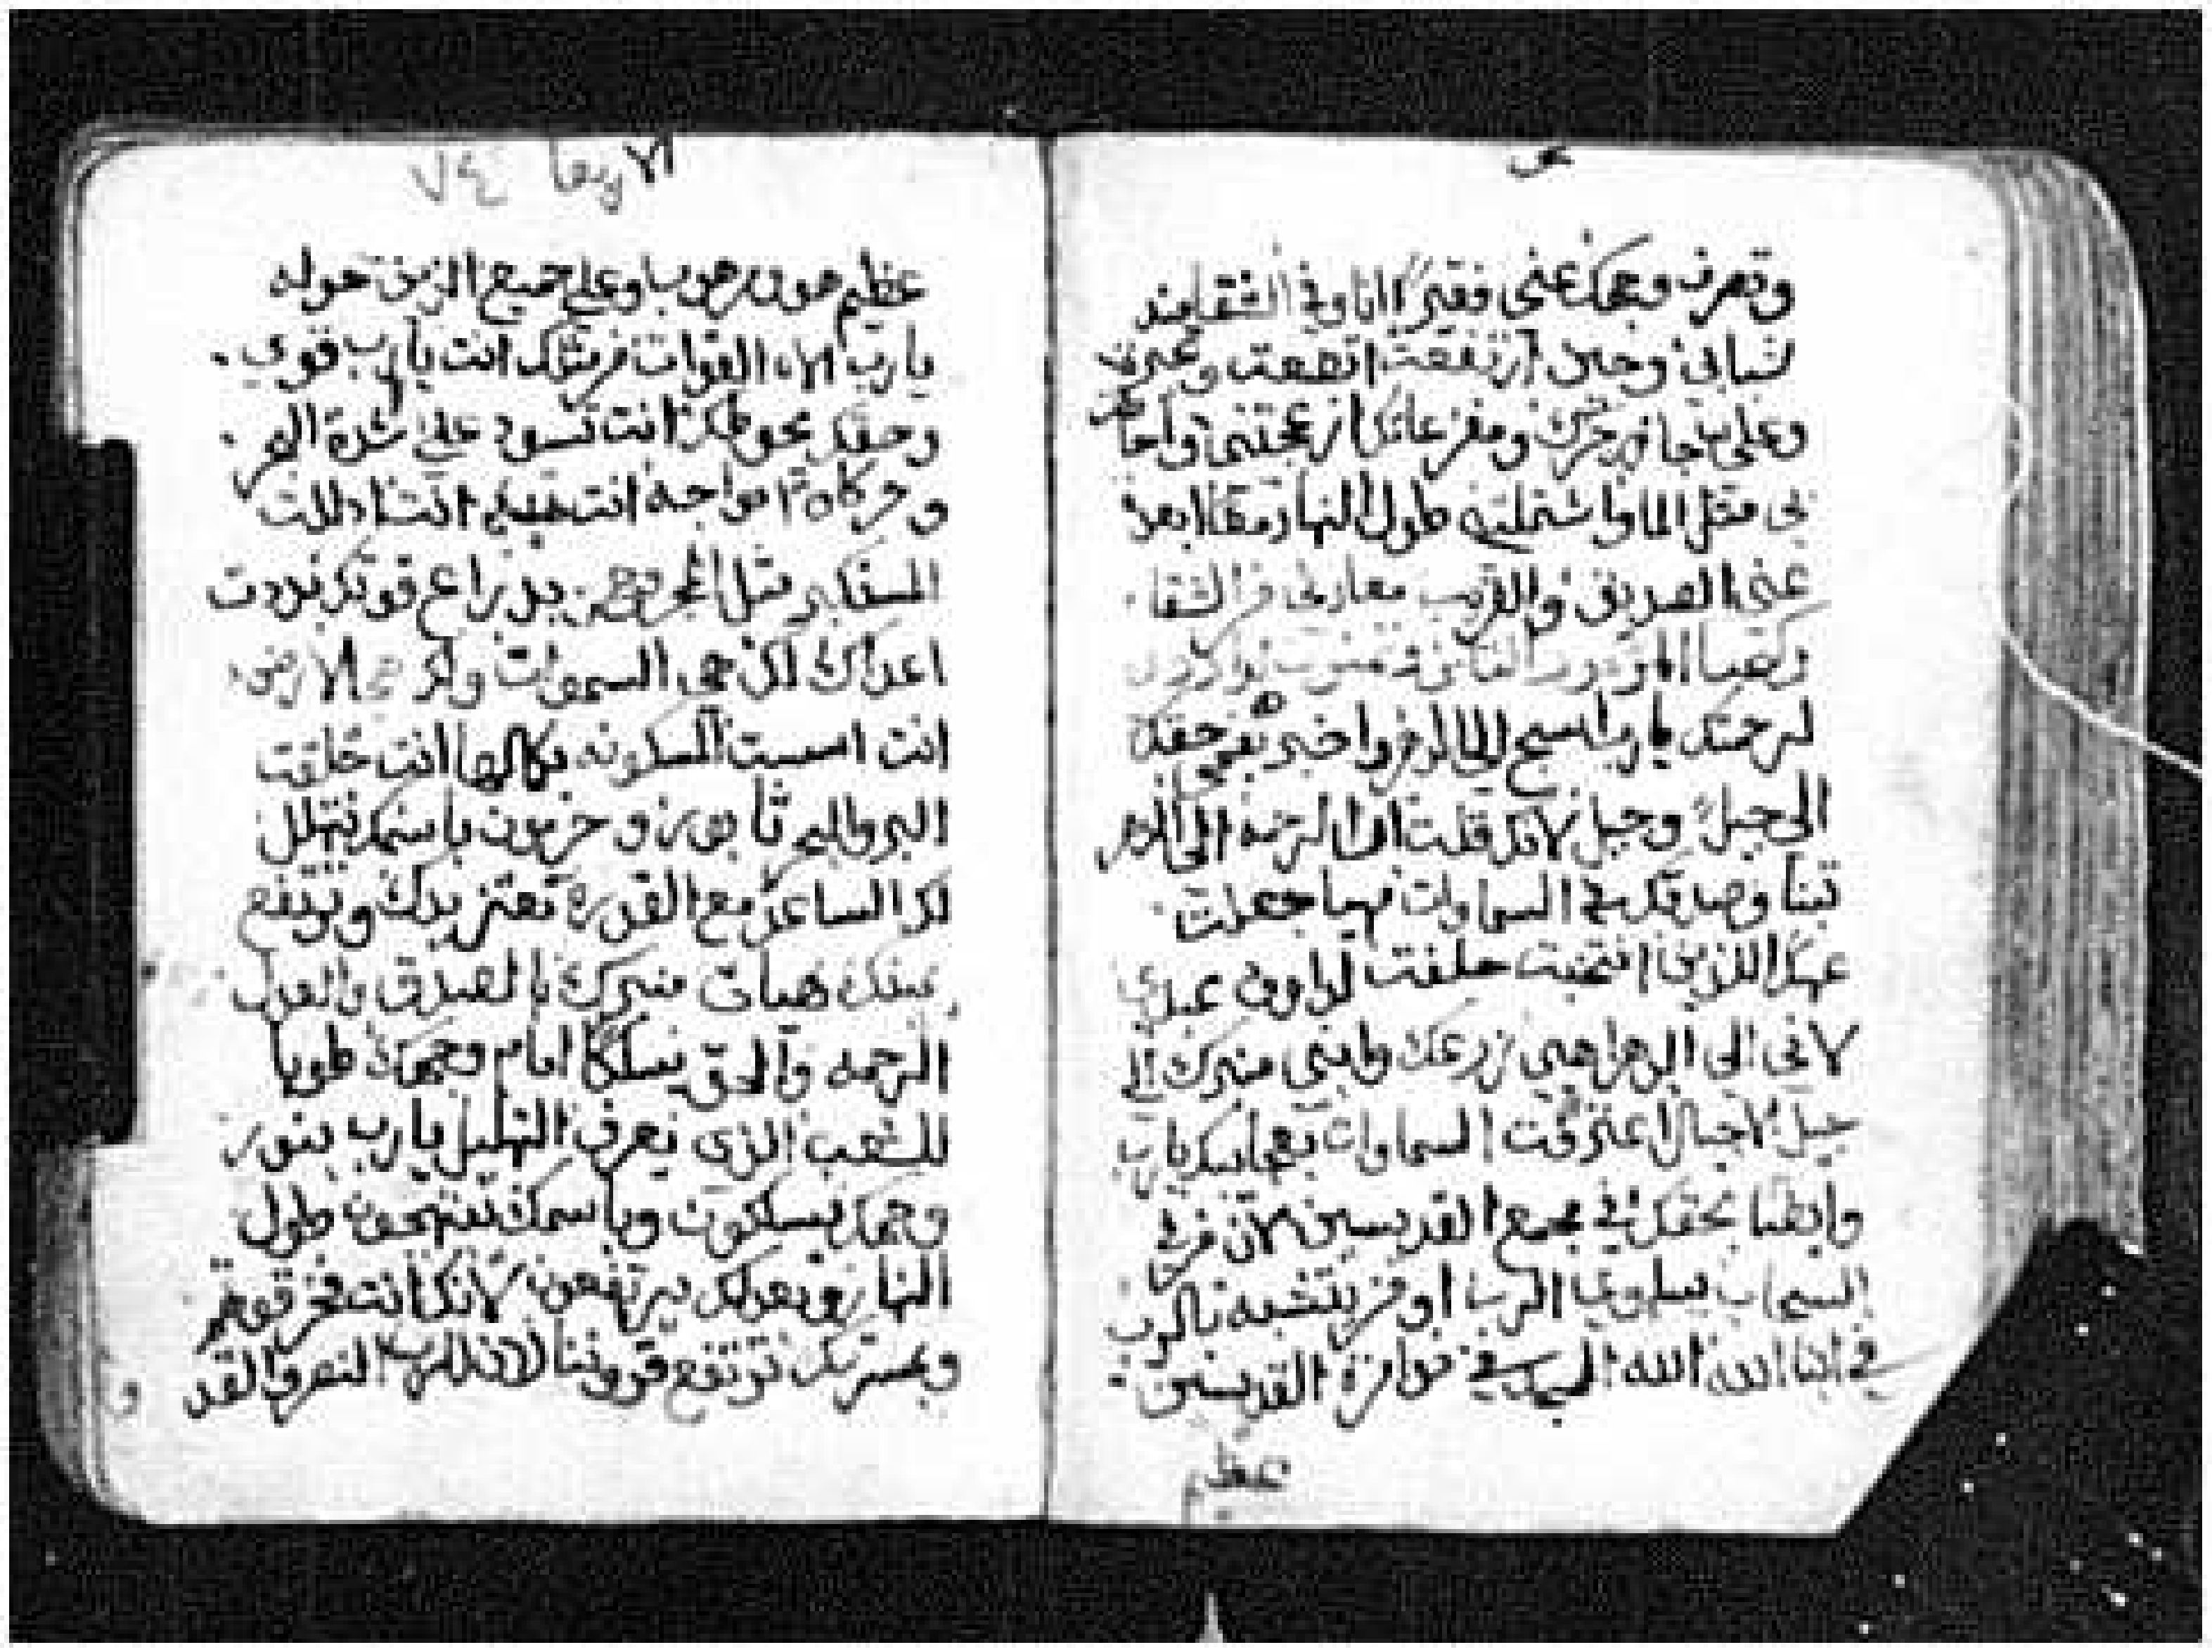 وتصرف وجهك عنى فقير انا وفي الشقا منذ
شبابي وحين ارتفعت اتضعت وتحيرت
وعلى جاز رجزك ومفزعاتك ازعجتنى واحا
بى مثل الما واشتملتنى طول النهار معا ابعد
عنى الصديق والقريب ومعارفى من الشقا
لرحمتك يارب اسبح الى الدهر واخبر بفمى حقك
الى جيل وجيل لانك قلت ان الرحمة الى الدهر
تبنا وصدقك في السماوات تهيا جعلت
عهدا للذين انتخبت حلفت لداوود عبدي
لانى الى الدهر اهيى زرعك وابنى منبرك الى
جيل الاجيال اعترفت السماوات بعجايبك يارب
وايضا بحقك في مجمع القديسين لان من في
السحاب يساوي الرب او من يتشبه بالرب
في ابنا الله الله المجد في موامرة القديسين
عظيم
الاربعا ٧٤
عظيم هو ومرهوب وعلى جميع الذين حوله
يارب الاه القوات من مثلك انت يارب قوي
وحقك بحوطك انت تسود على شدة البحر
وحركات امواجه انت تهديها انت اذللت
المتكابر مثل المجروحين بذراع قوتك بددت
اعداك لك هى السموات ولك هى الارض
انت اسست المسكونه بكمالها انت خلقت
البر والبحر تابور وحرمون باسمك يتهلل
لك الساعد مع القدرة تعتز يدك وترتفع
يمينك هيات منبرك بالصدق والعدل
الرحمه والحق يسلكا امام وجهك طوبا
للشعب الذي يعرف التهليل يارب بنور
وجهك يسلكون وباسمك يبتهجون طول
النهار وبعدلك يرتفعون لانك انت فخر قوتهم
وبمسرتك ترتفع قروننا لان للرب النصر والقد
و